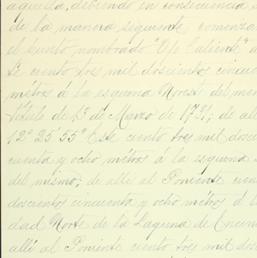 aquella, debiendo en consecuencia s
de la manera siguiente, comenza
el punto nombrado Ojo Caliente
te ciento tres mil doscientos cincue
metros de la esquina Noreste del
título de 1º de Marzo de 1731; de al
12º 25' 55" Este ciento tres mil dosc
cuenta y ocho métros á la esquina
del mismo; de allí al Poniente cien
doscientos cincuenta y ocho métros á l
dad Norte de la Laguna de Encin
allí al Poniente ciento tres mil dosc